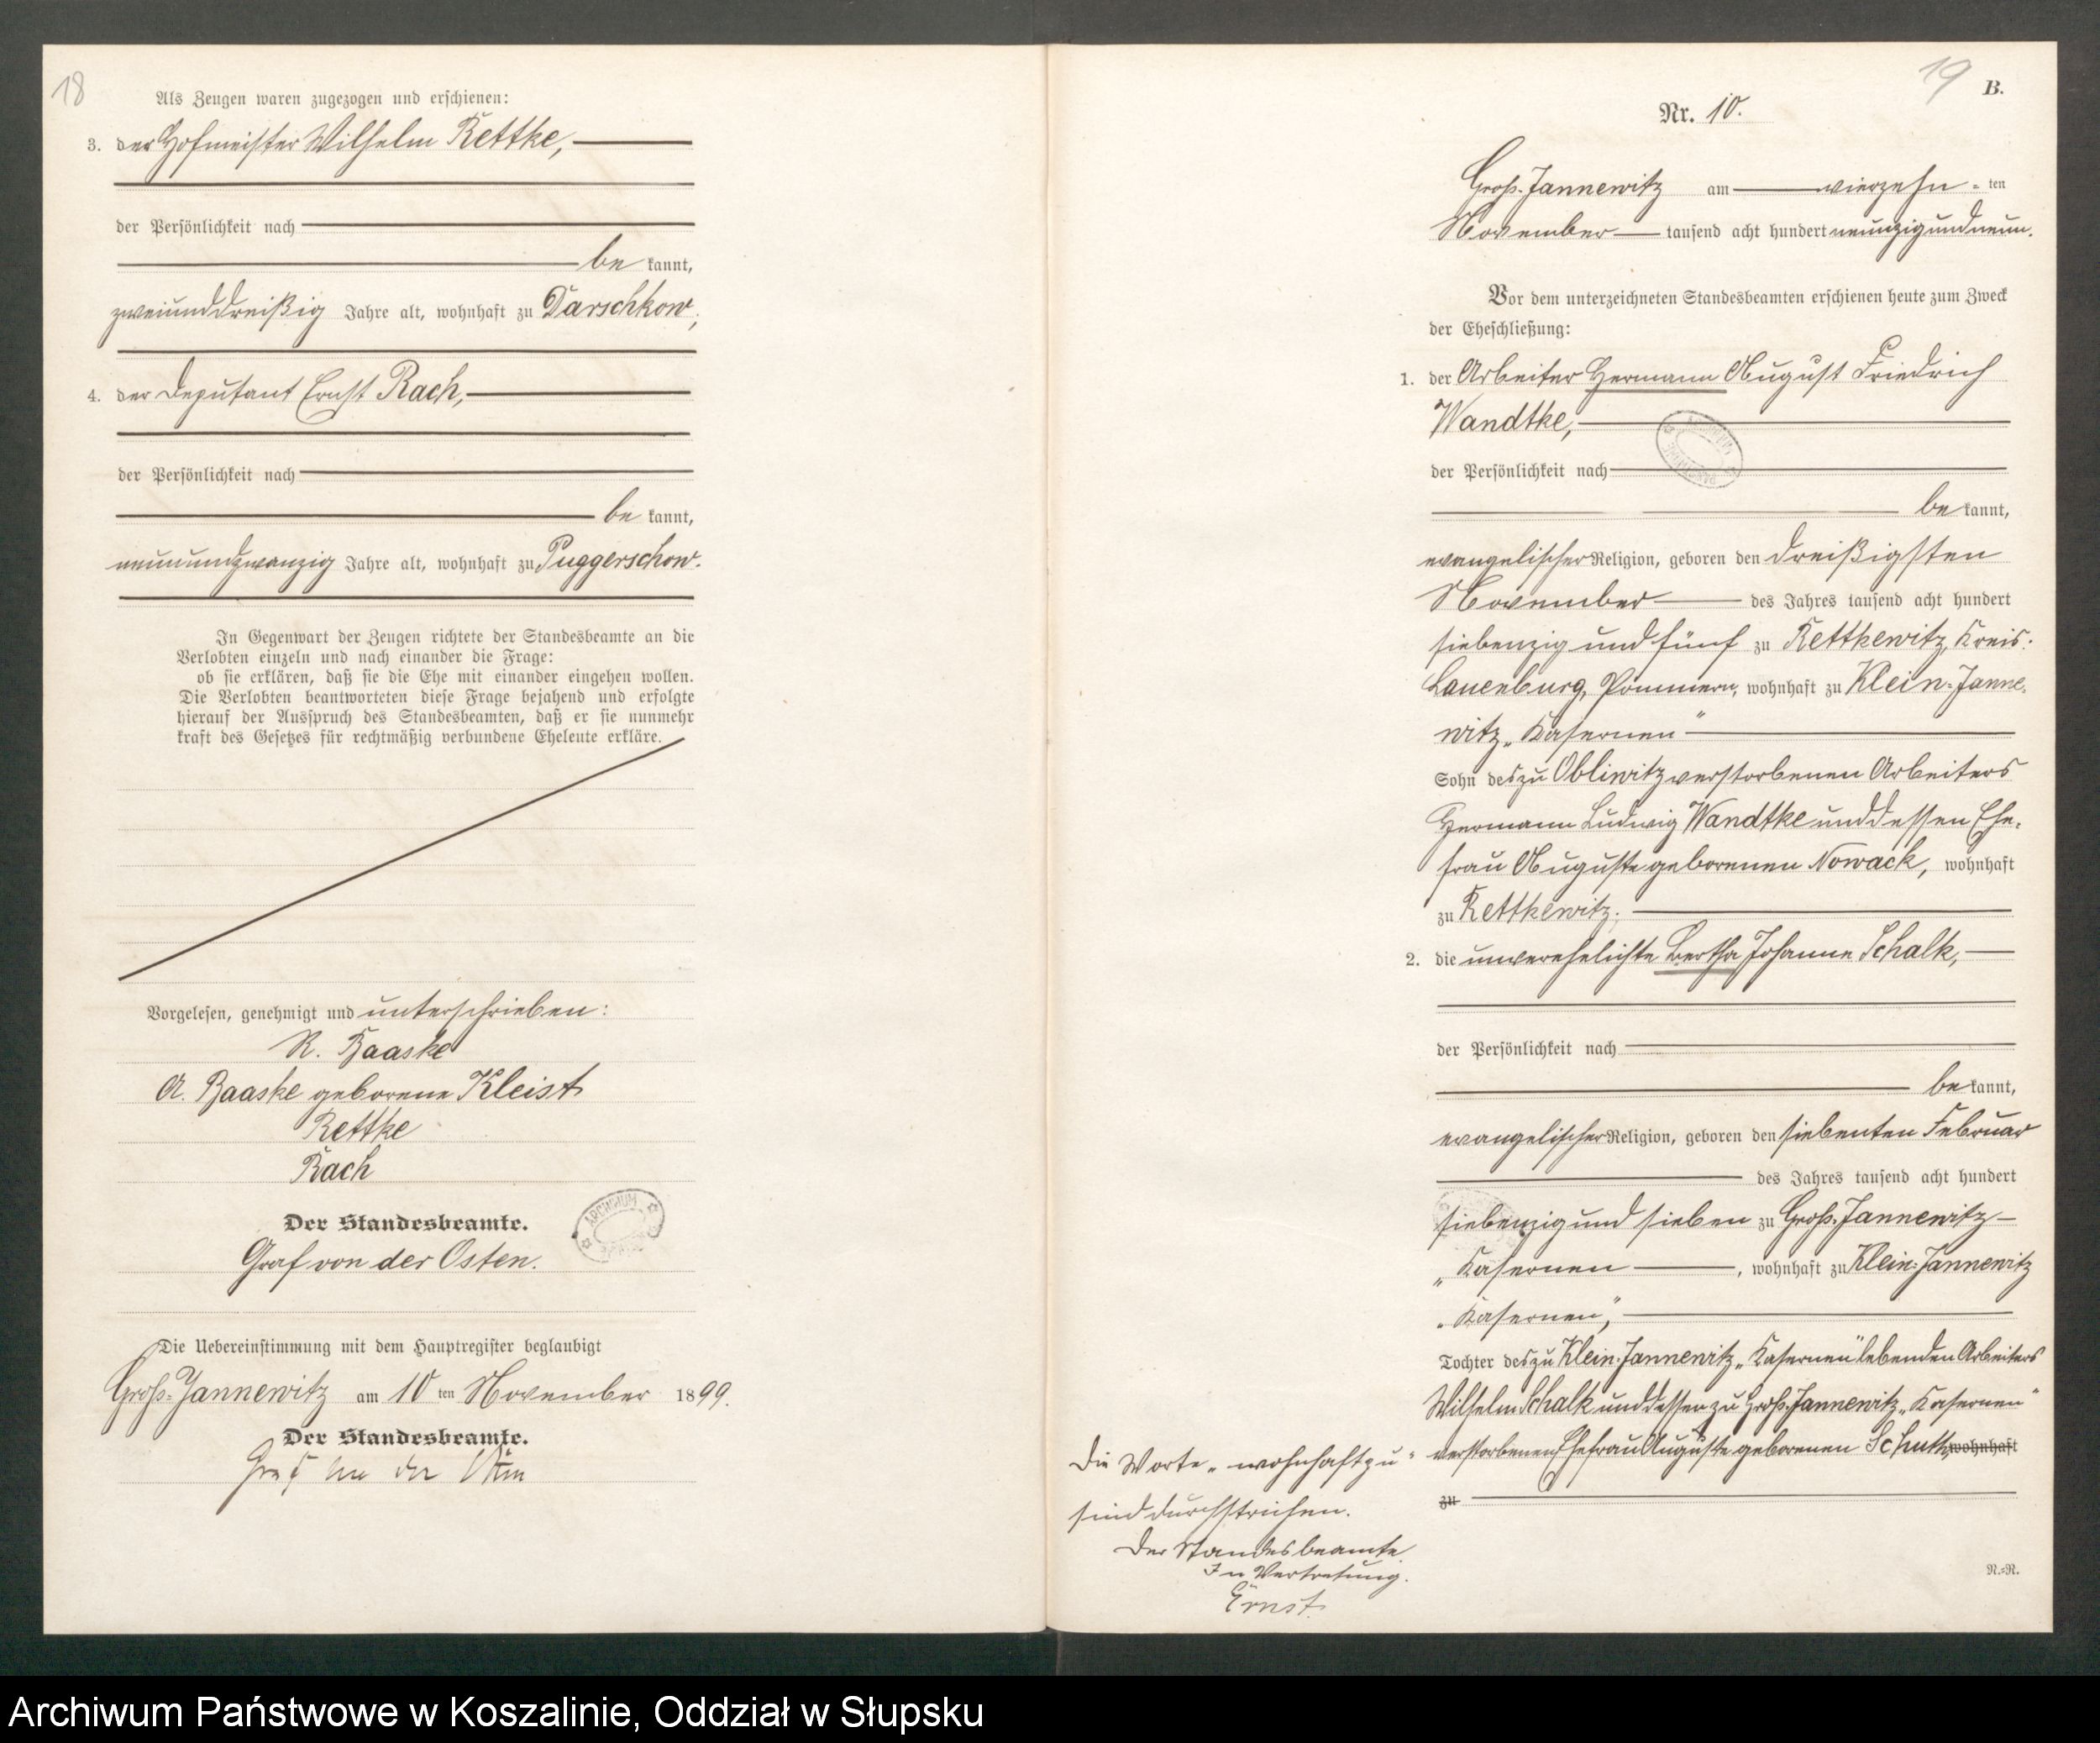 18
Als Zeugen waren zugezogen und erschienen:
3. der Hofmeister Wilhelm Rettke,
der Persönlichkeit nach
be kannt,
zweiunddreißig Jahre alt, wohnhaft zu Darschkow,
4. der Deputant Ernst Rach,
der Persönlichkeit nach
be kannt,
neunundzwanzig Jahre alt, wohnhaft zu Puggerschow.
In Gegenwart der Zeugen richtete der Standesbeamte an die
Verlobten einzeln und nach einander die Frage:
ob sie erklären, daß sie die Ehe mit einander eingehen wollen.
Die Verlobten beantworteten diese Frage bejahend und erfolgte
hierauf der Ausspruch des Standesbeamten, daß er sie nunmehr
kraft des Gesetzes für rechtmäßig verbundene Eheleute erkläre.
Vorgelesen, genehmigt und unterschrieben:
R. Baaske
A. Baaske geborene Kleist
Rettke
Rach
Der Standesbeamte.
ARCHIWUM
Graf von der Osten.
Die Uebereinstimmung mit dem Hauptregister beglaubigt
Groß-Jannewitz am 10 ten November 1899.
Der Standesbeamte.
Graf von der Osten
19
B.
Nr. 10.
Groß-Jannewitz am vierzehn-ten
November tausend acht hundert neunzig und neun.
Vor dem unterzeichneten Standesbeamten erschienen heute zum Zweck
der Eheschließung:
1. der Arbeiter Hermann August Friedrich
Wandtke,
der Persönlichkeit nach
be kannt,
evangelischer Religion, geboren den dreißigsten
November des Jahres tausend acht hundert
siebenzig und fünf zu Rettkewitz, Kreis:
Lauenburg, Pommern, wohnhaft zu Klein-Janne-
witz „Kasernen"
Sohn des zu Obliwitz verstorbenen Arbeiters
Hermann Ludwig Wandtke und dessen Ehe-
frau Auguste geborenen Nowack, wohnhaft
zu Rettkewitz.
2. die unverehelichte Bertha Johanne Schalk,
der Persönlichkeit nach
be kannt,
evangelischer Religion, geboren den siebenten Februar
des Jahres tausend acht hundert
siebenzig und sieben zu Groß-Jannewitz
„Kasernen, wohnhaft zu Klein-Jannewitz
„Kasernen",
Tochter des zu Klein-Jannewitz „Kasernen" lebenden Arbeiters
Wilhelm Schalk und dessen zu Groß-Jannewitz „Kasernen"
verstorbenen Ehefrau Auguste geborenen Schutt, wohnhaft
zu
Die Worte „wohnhaft zu"
sind durchstrichen.
Der Standesbeamte
In Vertretung.
Ernst
R.-R.
Archiwum Państwowe w Koszalinie, Oddział w Słupsku